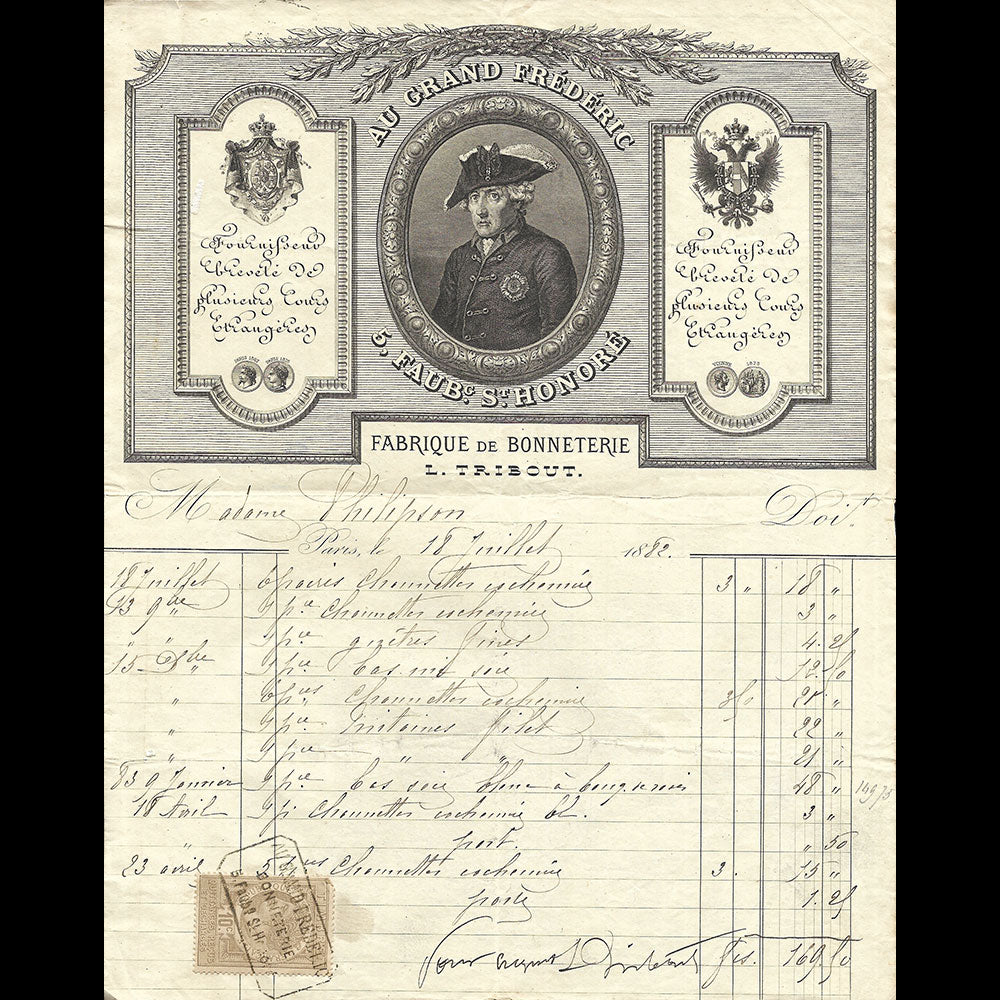 AU GRAND FRÉDÉRIC
Fournisseur
breveté de
plusieurs Cours
Etrangères
PARIS 1867 PARIS 1878
Fournisseur
breveté de
plusieurs Cours
Etrangères
VIENNE 1873
5, FAUBG. ST. HONORÉ
FABRIQUE DE BONNETERIE
L. TRIBOUT.
Madame Philipson Doit
Paris, le 18 Juillet 1882.
18 Juillet 6 paires Chaussettes cachemire 3 " 18 "
13 9bre 1 pre Chaussettes cachemire 3 "
" " 1 pre guêtres fines 4.25
15 - " 1 pre bas mi soie 12.50
" 6 pres Chaussettes cachemire 350 21 "
" 1 pre filet 22 "
" 1 pre " " 21 "
83 9 Janvier 1 pre bas soie 48 " 149 75
18 Avril 1 p Chaussettes cachemire bl. 3 "
port. " 50
23 avril 5 pres Chaussettes cachemire 3. 15 "
port 1.25
Pour acquit L Tribout frs. 169.50
10c
AU GRAND FRÉDÉRIC
BONNETERIE
5, FAUBG ST. H